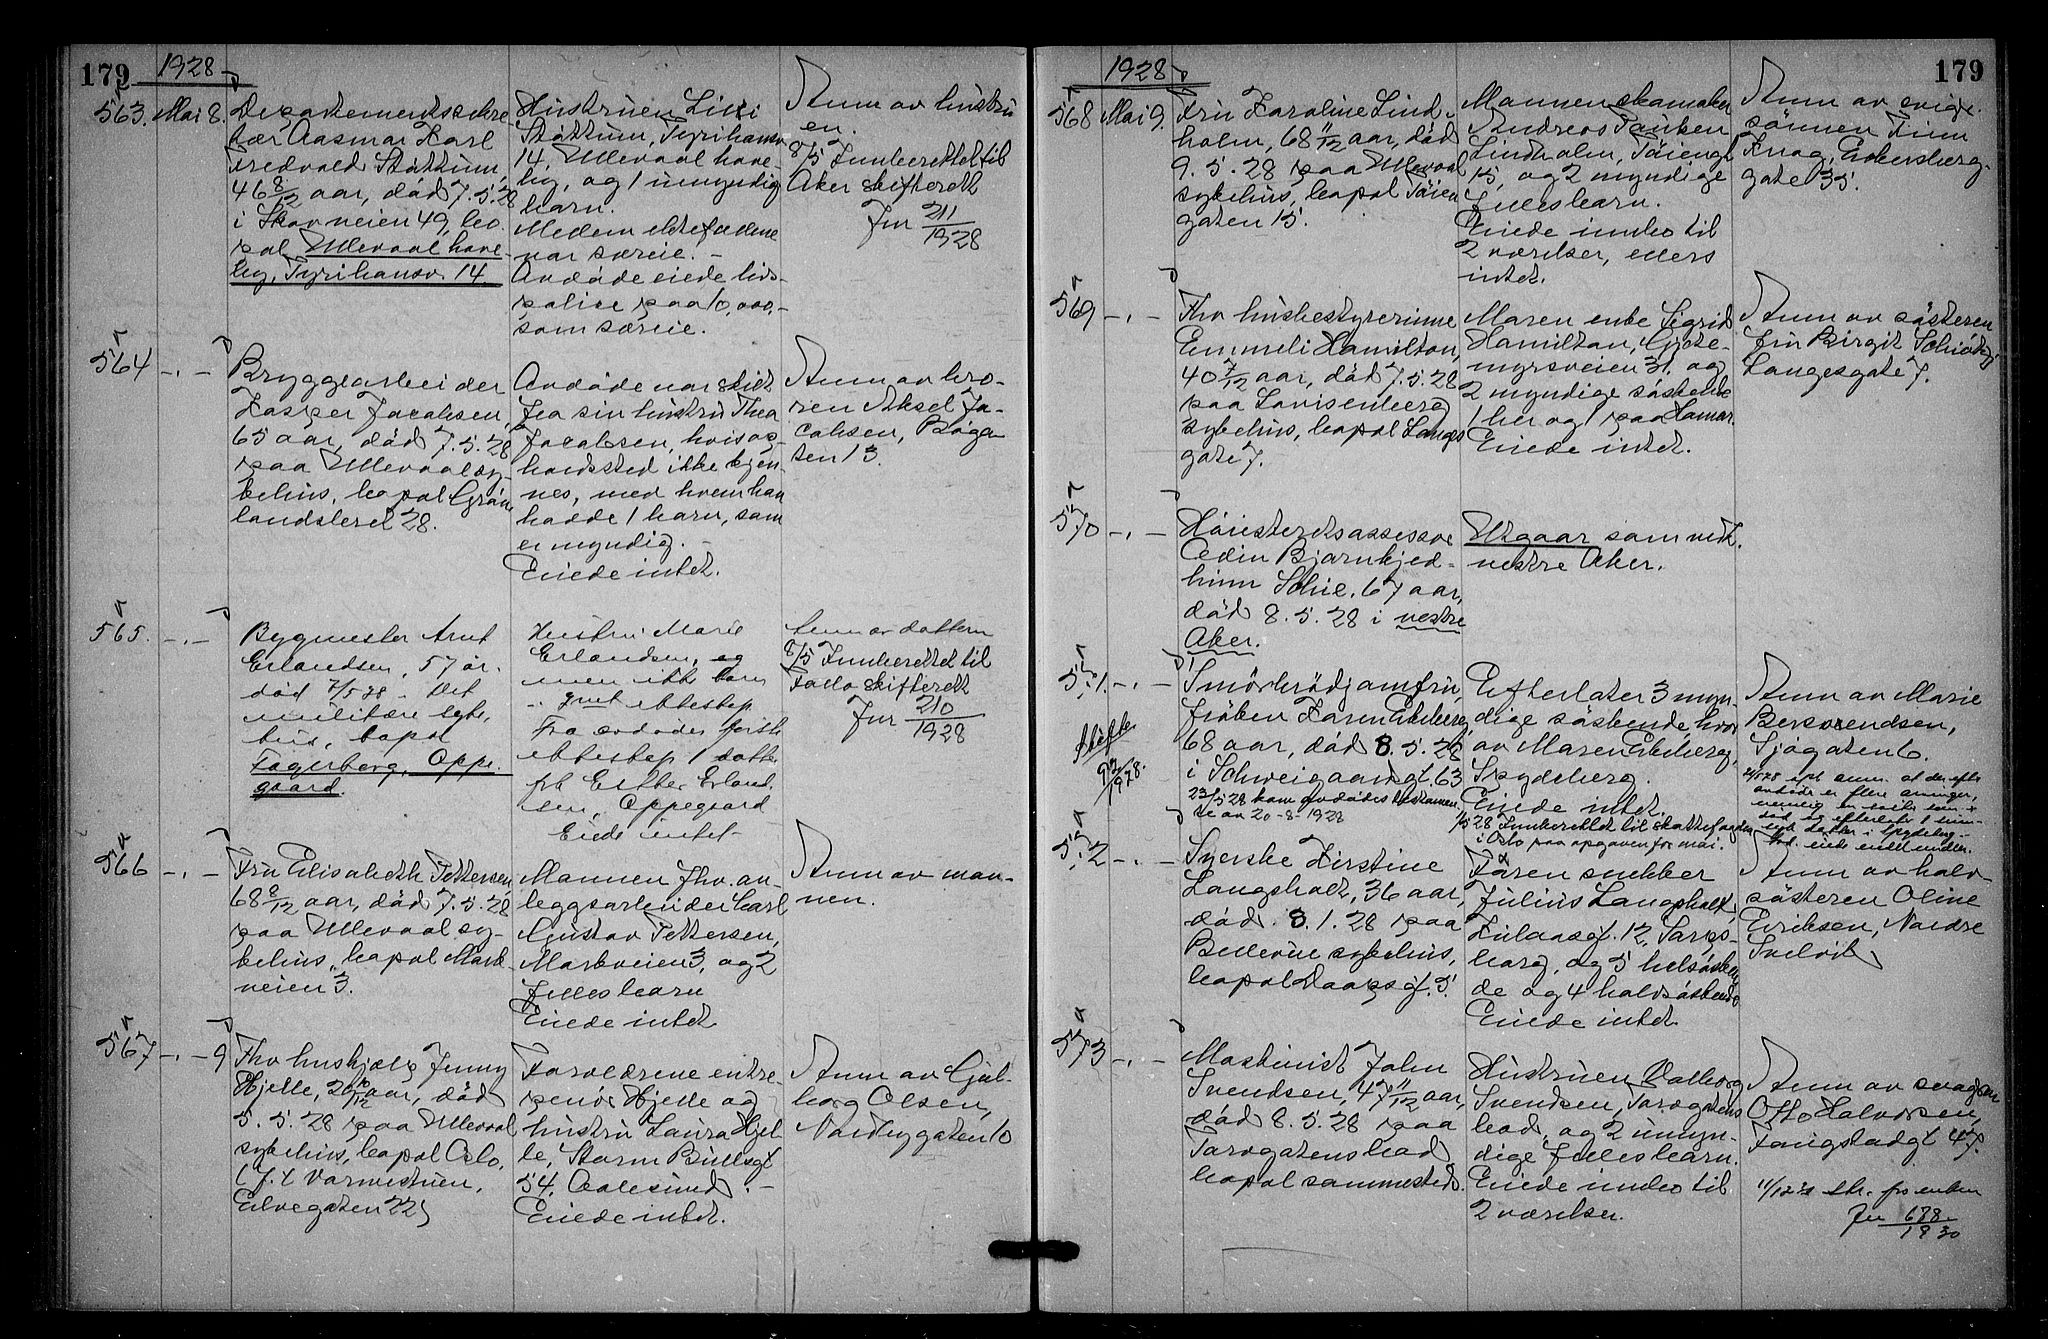 179 1928
563. Mai 8.
Departementssekre
tær Aasmar Karl
Fredvald Støttum,
46 8/12 aar, død 7.5.28
i Skovveien 49, bo
pæl Ullevaal have-
by, Tyrihansv. 14.
Hustruen Lilli
Støttum, Tyrihansv
14, Ullevaal have-
by, og 1 umyndig
barn.
Mellem ektefællene
var særeie. -
Avdøde eiede livs-
police paa 10,000,-
som særeie.
Anm av hustru
en.
8/5 Innberettet til
Aker skifterett
Jnr 211/1928
564 -.-
Bryggearbeider
Kasper Jacobsen,
65 aar, død 7.5.28
paa Ullevaal sy-
kehus, bopæl Grøn
landsleret 28.
Avdøde var skilt
fra sin hustru Thea
Jacobsen, hvis op-
holdssted ikke kjen-
nes, med hvem han
hadde 1 barn, som
er myndig. -
Eiede intet.
Anm av bro-
ren Aksel Ja-
cobsen, Bøga
ten 13.
565. -.-
Bygmester Arnt
Erlandsen, 57 år.
død 7/5 28 - Det
militære syke,
hus, bopæl
Fagerberg, Oppe-
gaard.
Hustru Marie
Erlandsen, og
men ikke barn
i ektesksp
Fra avdødes første
ektesksp 1 datter
frk Esther Erland
sen, Oppegaard
Eiede intet -
Anm av datteren
8/5 Innberettet til
Follo skifterett
Jnr 210/1928
566 -.-
Fru Elisabeth Pettersen
68 9/12 aar, død 7.5.28
paa Ullevaal sy-
kehus, bopæl Mark
veien 3.
Mannen fhv. an-
leggsarbeider Carl
Gustav Pettersen,
Markveien 3, og 2
fellesbarn
Eiede intet
Anm av man-
nen.
567 -.- 9
Fhv hushjelp Jenny
Hjelle, 26 10/12 aar, død
5.5.28 paa Ullevaal
sykehus, bopæl Oslo,
(f. t Varmestuen,
Elvegaten 22)
Forældrene entre-
penør Hjelle og
hustru Laura Hjel
le, Storm Bullsgt
54, Aalesund. -
Eiede intet.
Anm av Gjul-
borg Olsen,
Nordbygaten 10
1928 179
568 Mai 9.
Fru Karoline Lind-
holm, 68 11/12 aar, død
9.5.28 paa Ullevaal
sykehus, bopæl Tøien
gaten 15.
Mannen skomaker
Andreas Pauken
Lindholm, Tøiengt
15, og 2 myndige
fellesbarn.
Eiede innbo til
2 værelser, ellers
intet.
Anm av svige-
sønnen Finn
Krog, Eckersberg-
gate 35.
569 -.-
Fhv husbestyrerinne
Emmeli Hamilton,
40 7/12 aar, død 7.5.28
paa Lovisenberg
sykehus, bopæl Langes
gate 7.
Moren enke Sigrid
Hamilton, Gjete-
myrsveien 31, og
2 myndige søskende
1 her og 1 paa Hamar.
Eiede intet.
Anm av søsteren
fru Birgit Schiøtz,
Langesgate 7.
570 -.-
Høiesterettsassessor
Edin Bjørnhjed-
hinn Schie, 67 aar,
død 8.5.28 i vestre
Aker.
Utgaar som vedk.
vestre Aker.
571. -.-
Smørbrødjomfru,
frøken Karen Ekeberg,
68 aar, død 8.5.28
i Schweigaardsgt. 63
23/5 28 kom avdødes testamen
te av 20-8-1928
Efterlater 3 myn-
dige søskende, hvor
av Maren Ekeberg,
Spydeberg.
Eiede intet.
1/6 28 Innberettet til skattefogden
i Oslo paa opgaven for mai.
Anm av Marie
Bersvendsen,
Sjøgaten 6.
572 -.-
Syerske Kirstine
Langholt, 36 aar,
død 8.1.28 paa
Bellevue sykehus,
bopæl Daasgt. 5.
Faren snekker
Julius Langholt
Kulaasgt. 12, Sarps-
borg, og 5 helsøsken
de og 4 halvsøskende
Eiede intet
Anm av halv-
søsteren Oline
Eriksen, Nordre
Svelvik
573 -.-
Maskinist John
Svendsen, 47 11/12 aar,
død 8.5.28 paa
Tarogatens bad
bopæl sammesteds.
Hustruen Valborg
Svendsen, Tarogatens
bad, og 2 umyn-
dige fellesbarn.
Eiede innbo til
2 værelser.
Anm av svogeren
Otto Halvorsen,
Fougstadgt 47.
11/12 28 skr. fra enken
Jnr 678/1930